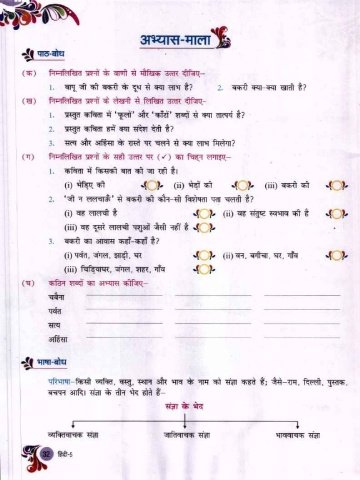 अभ्यास-माला
पाठ-बोध
(क) निम्नलिखित प्रश्नों के वाणी से मौखिक उत्तर दीजिए–
1. बापू जी को बकरी के दूध से क्या लाभ है? 2. बकरी क्या-क्या खाती है?
(ख) निम्नलिखित प्रश्नों के लेखनी से लिखित उत्तर दीजिए–
1. प्रस्तुत कविता में 'फूलों' और 'काँटों' शब्दों से क्या तात्पर्य है?
2. प्रस्तुत कविता हमें क्या संदेश देती है?
3. सत्य और अहिंसा के रास्ते पर चलने से क्या लाभ मिलेगा?
(ग) निम्नलिखित प्रश्नों के सही उत्तर पर (✓) का चिह्न लगाइए–
1. कविता में किसकी बात की जा रही है।
(i) भेड़िए की (ii) भेड़ों की (iii) बकरी की
2. 'जी न ललचाऊँ' से बकरी की कौन-सी विशेषता पता चलती है?
(i) वह लालची है (ii) वह संतुष्ट स्वभाव की है
(iii) वह दूसरे लालची पशुओं जैसी नहीं है
3. बकरी का आवास कहाँ-कहाँ है?
(i) पर्वत, जंगल, झाड़ी, घर (ii) वन, बगीचा, घर, गाँव
(iii) चिड़ियाघर, जंगल, शहर, गाँव
(घ) कठिन शब्दों का अभ्यास कीजिए–
चबैना
पर्वत
सत्य
अहिंसा
भाषा-बोध
परिभाषा–किसी व्यक्ति, वस्तु, स्थान और भाव के नाम को संज्ञा कहते हैं; जैसे–राम, दिल्ली, पुस्तक,
बचपन आदि। संज्ञा के तीन भेद होते हैं–
संज्ञा के भेद
व्यक्तिवाचक संज्ञा जातिवाचक संज्ञा भाववाचक संज्ञा
32 हिंदी-5